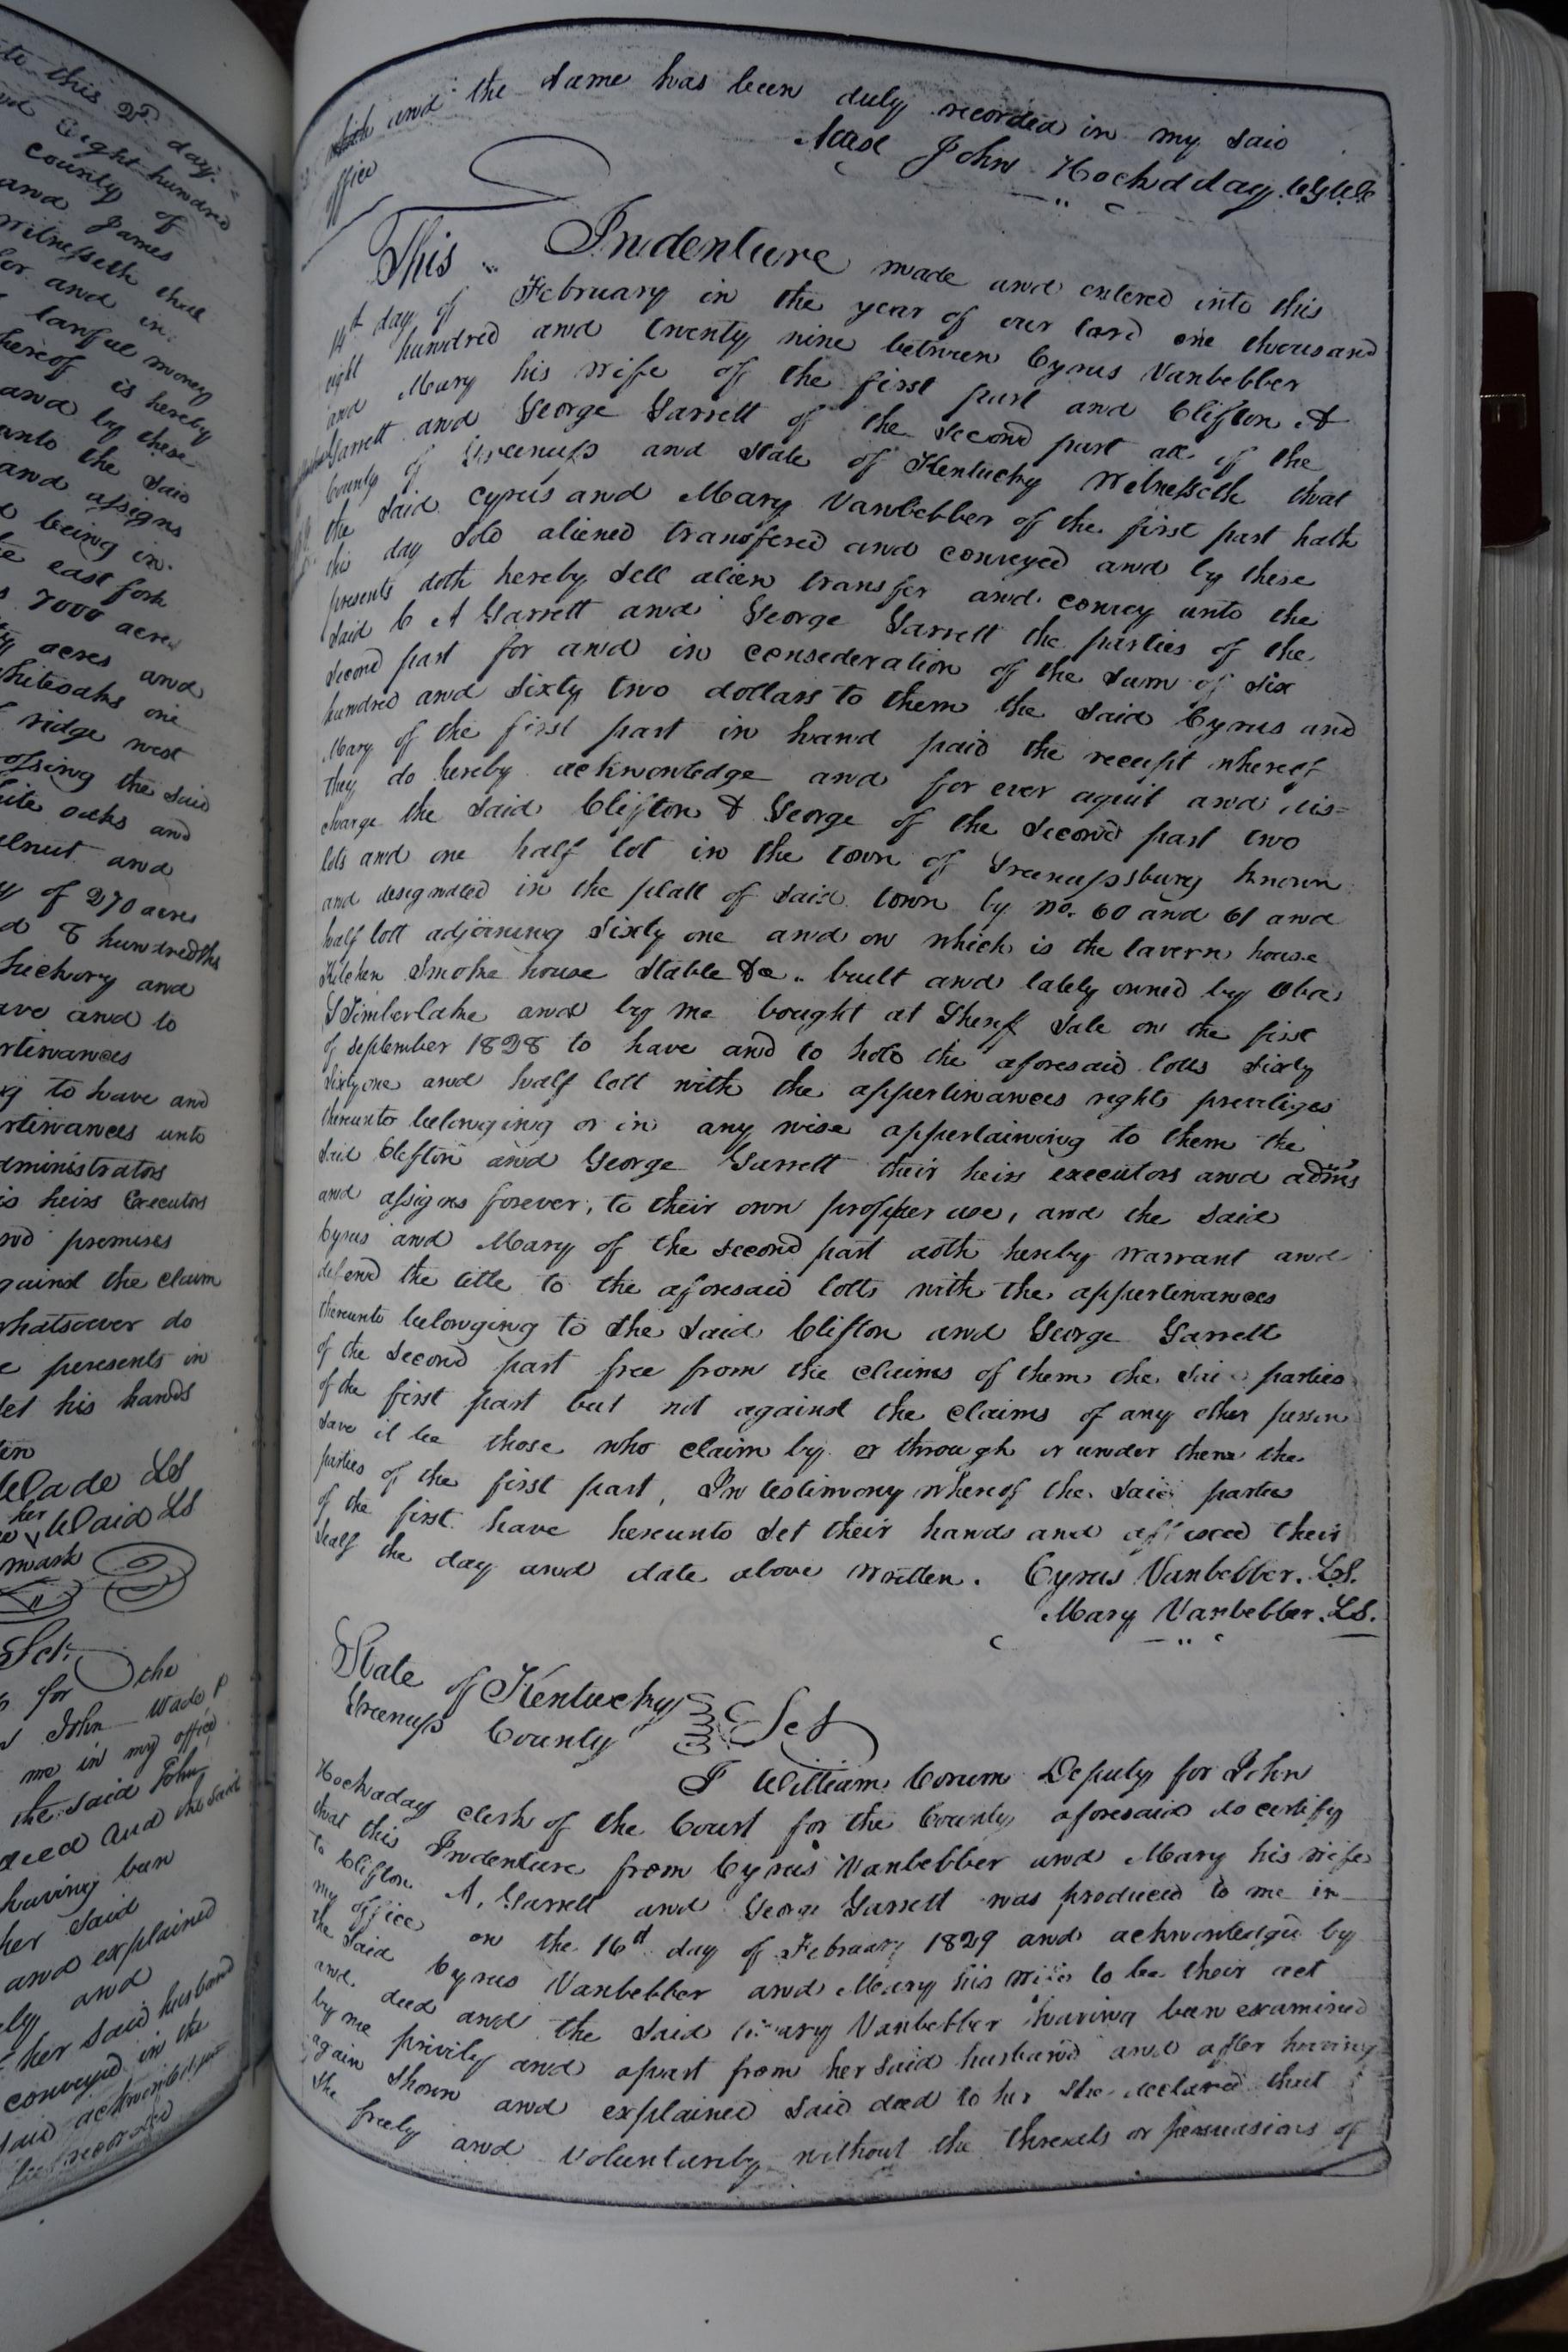 te this 2d day
nd Eight hundred
County of
and James
Witnesseth that
for and in
lawful money
hereof is hereby
and by these
unto the said
and assigns
d being in
the east fork
7000 acres
acres and
whiteoaks one
ridge west
ossing the said
ite oaks and
alnut and
of 270 acres
d 8 hundredths
hickory and
ave and to
rtinances
g to have and
rtinances unto
dministrators
is heirs Executors
nd premises
gainst the claim
whatsoever do
e presents in
set his hands
Wade LS
her
Waid LS
mark
Sct.
for the
John Wade
me in my office
the said John
deed and the said
having been
her said
and explained
ly and
her said husband
conveyed in the
said
be recorded
and the same has been duly recorded in my said
office
Attest John Hockaday. C G C C
This Indenture made and entered into this
14th day of February in the year of our lord one thousand
eight hundred and twenty nine between Cyrus Vanbebber
and Mary his wife of the first part and Clifton A
Garrett and George Garrett of the second part all of the
County of Greenups and State of Kentucky Witnesseth that
the said Cyrus and Mary Vanbebber of the first part hath
this day sold aliened transfered and conveyed and by these
presents doth hereby sell alien transfer and convey unto the
said C A Garrett and George Garrett the parties of the
second part for and in consederation of the sum of six
hundred and sixty two dollars to them the said Cyrus and
Mary of the first part in hand paid the receipt whereof
they do hereby acknowledge and for ever aquit and dis=
charge the said Clifton & George of the second part two
lots and one half lot in the town of Greenupsburg known
and designated in the platt of said town by no. 60 and 61 and
half lott adjoining sixty one and on which is the tavern house
Kitchen Smoke house Stable &c. built and lately owned by Oba
S Timberlake and by me bought at Sherif Sale on the first
of September 1828 to have and to hold the aforesaid lotts sixty
sixty one and half lott with the appertinances rights priviliges
thereunto belonging or in any wise appertaining to them the
said Clifton and George Garrett their heirs executors and adms
and assigns forever, to their own propper use, and the said
Cyrus and Mary of the second part doth hereby warrant and
defend the title to the aforesaid lotts with the appertinances
thereunto belonging to the said Clifton and George Garrett
of the second part free from the claims of them the said parties
of the first part but not against the claims of any other person
save it be those who claim by or through or under them the
parties of the first part, In testimony whereof the said parties
of the first have hereunto set their hands and affixed their
seals the day and date above written. Cyrus Vanbebber. LS.
Mary Vanbebber. LS.
State of Kentucky
Greenups County Sct
I William Corum Deputy for John
Hockaday clerk of the Court for the County aforesaid do certify
that this Indenture from Cyrus Vanbebber and Mary his wife
to Clifton A. Garrett and George Garrett was produced to me in
my office on the 16th day of February 1829 and acknowledged by
the said Cyrus Vanbebber and Mary his wife to be their act
and deed and the said Mary Vanbebber having been examined
by me privily and apart from her said husband and after having
again shown and explained said deed to her she declared that
she freely and voluntarily without the threats or persuasions of